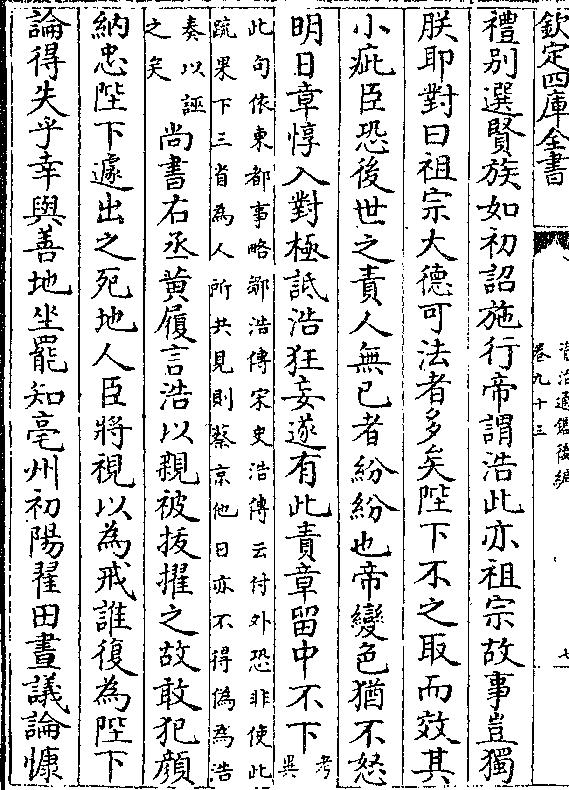 欽定四庫全書
資治通鑑後編
卷九十三
七
禮别選賢族如初詔施行帝謂浩此亦祖宗故事豈獨
朕耶對曰祖宗大德可法者多矣陛下不之取而效其
小疵臣恐後世之責人無已者紛紛也帝變色猶不怒
明日章惇入對極詆浩狂妄遂有此責章留中不下考異
此句依東都事略鄒浩傳宋史浩傳云付外恐非使此
疏果下三省為人所共見則蔡京他日亦不得偽為浩
奏以誣
之矣
尚書右丞黄履言浩以親被拔擢之故敢犯顔
納忠陛下遽出之死地人臣將視以為戒誰復為陛下
論得失乎幸與善地坐罷知亳州初陽翟田晝議論慷